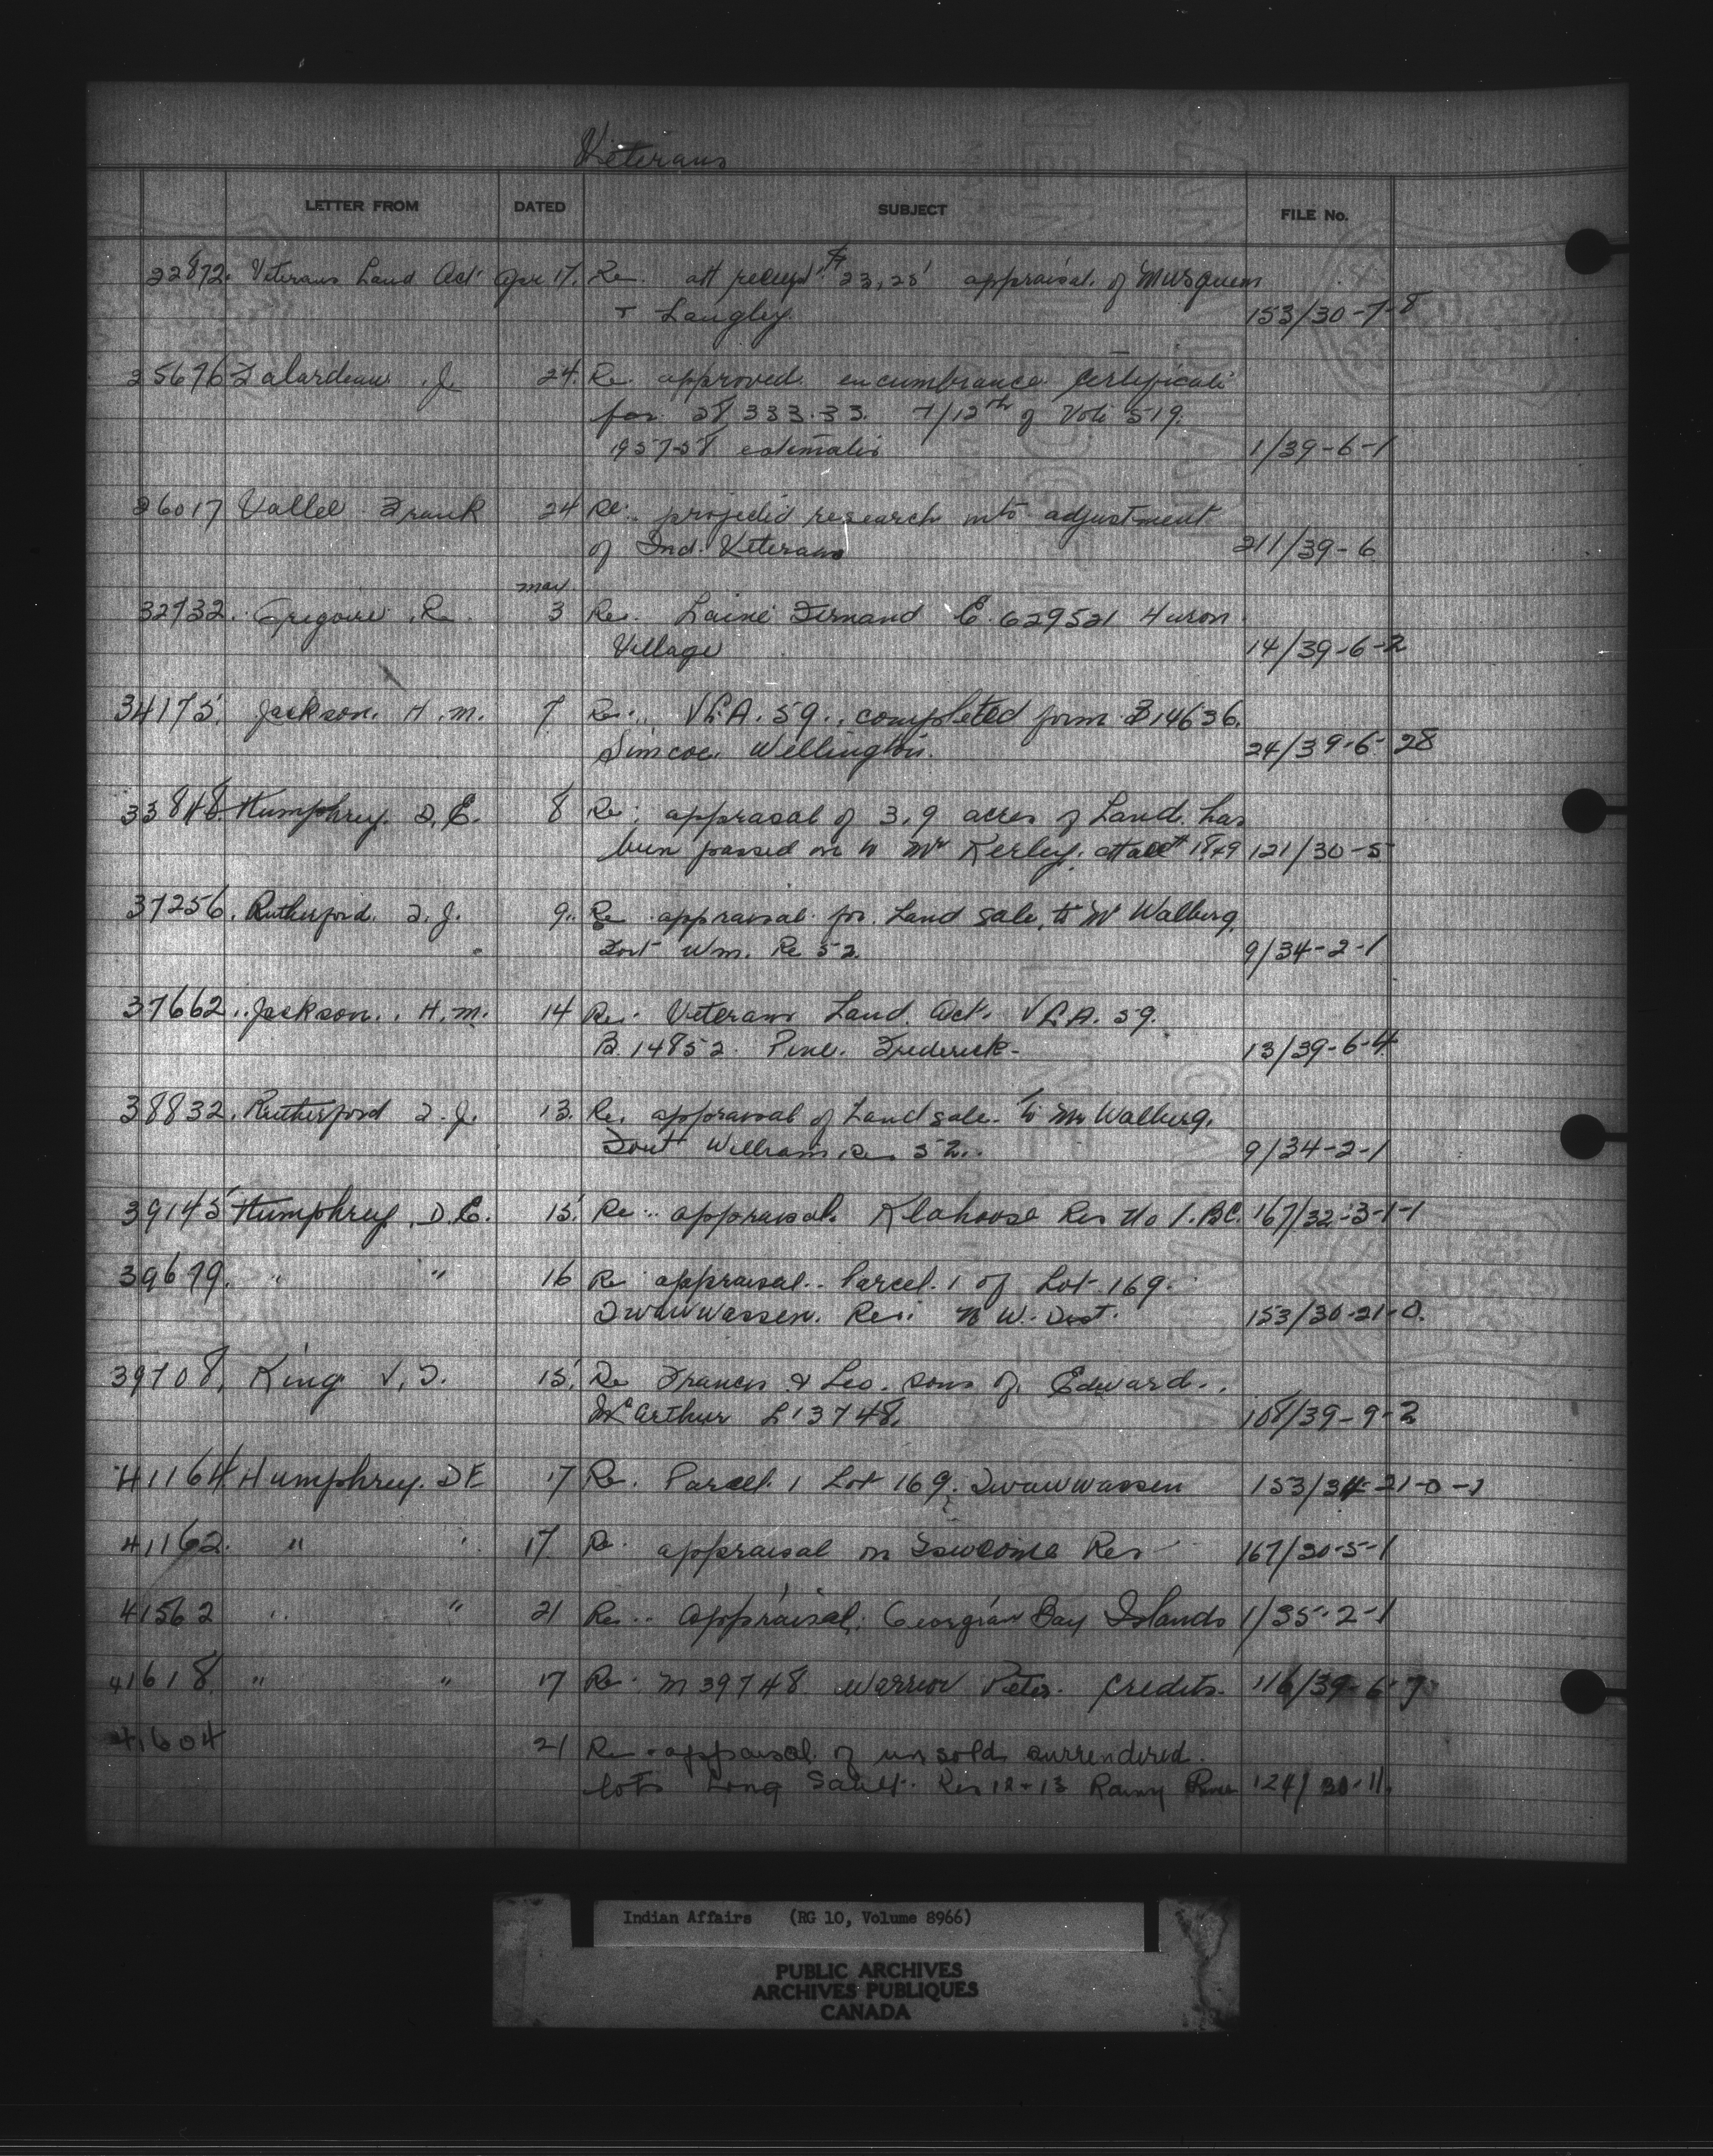 Veterans
LETTER FROM DATED SUBJECT FILE No.
22872. Veterans Land Act Apr 17. Re. att receipt # 23, 25 appraisal. of Musqueam
+ Langley. 153/30-7-8
25676 Falardeau. J. 24. Re. approved. encumbrance certificate
for 28,333.33. 7/12th of Vote 519.
1957-58 estimates 1/39-6-1
26017 Vallee Frank 24 Re. projected research into adjustment
of Ind. Veterans 211/39-6
May
32732. Gregoire. R. 3 Re. Laine Fernand E. 629521 Huron
Village 14/39-6-2
34175. Jackson. H.M. 7 Re. VLA. 59., completed form B14636.
Simcoe. Wellington. 24/39-6-28
33848 Humphrey. D.E. 8 Re: apprasal of 3.9 acres of Land. has
been passed on to Mr Kerley. 121/30-5
37256. Rutherford. T.J. 9. Re appraisal for Land sale, to Mr Walberg.
Fort Wm. Re 52. 9/34-2-1
37662. Jackson. H.M. 14 Re. Veterans Land. Act. VLA. 59.
B.14852. Pine. Frederick- 13/39-6-4
38832. Rutherford T.J. 13. Re. appraisal of Land sale- to Mr Walberg.
Fort William Res 52. 9/34-2-1
39145 Humphrey. D.E. 15. Re. appraisal. Klahoose Res No 1. BC. 167/32-3-1-1
39679. " " 16 Re appraisal.. Parcel. 1 of Lot-169.
Twawwassen. Res. N W. Dist. 153/30-21-0.
39708. King V.T. 15. Re Francis & Leo. sons of. Edward.
McArthur L13748. 108/39-9-2
41164 Humphrey. DE 17 Re. Parcel. 1 Lot 169. Twawwassen 153/34-21-0-1
41162. " " 17. Re. appraisal on Res 167/30-5-1
41562 " " 21 Re.. Appraisal. Georgian Bay Islands 1/35-2-1
41618. " " 17 Re. M39748 Warrior Peter. Credits. 116/39-6-7
41604 21 Re. appraisal of unsold surrendered.
lots Long Sault. Res 12+13 Rainy River 124/30-11.
Indian Affairs (RG 10, Volume 8966)
PUBLIC ARCHIVES
ARCHIVES PUBLIQUES
CANADA